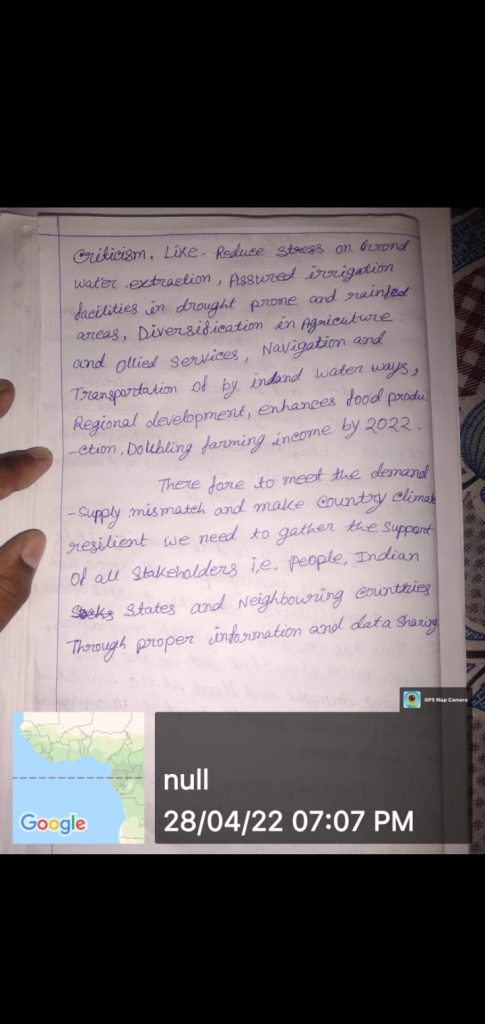 Criticism. Like - Reduce stress on Grond
water extraction, Assured irrigation
facilities in drought prone and rainfed
areas, Diversification in Agricuture
and Ollied services, Navigation and
Transportation of by indand water ways,
Regional development, enhances food produ
-ction, Doubling farming income by 2022.
There fore to meet the demand
-Supply mismatch and make country climate
resilient we need to gather the support
Of all Stakeholders i.e. people, Indian
States and Neighbouring countries
Through proper information and data sharing
GPS Map Camera
Google
null
28/04/22 07:07 PM